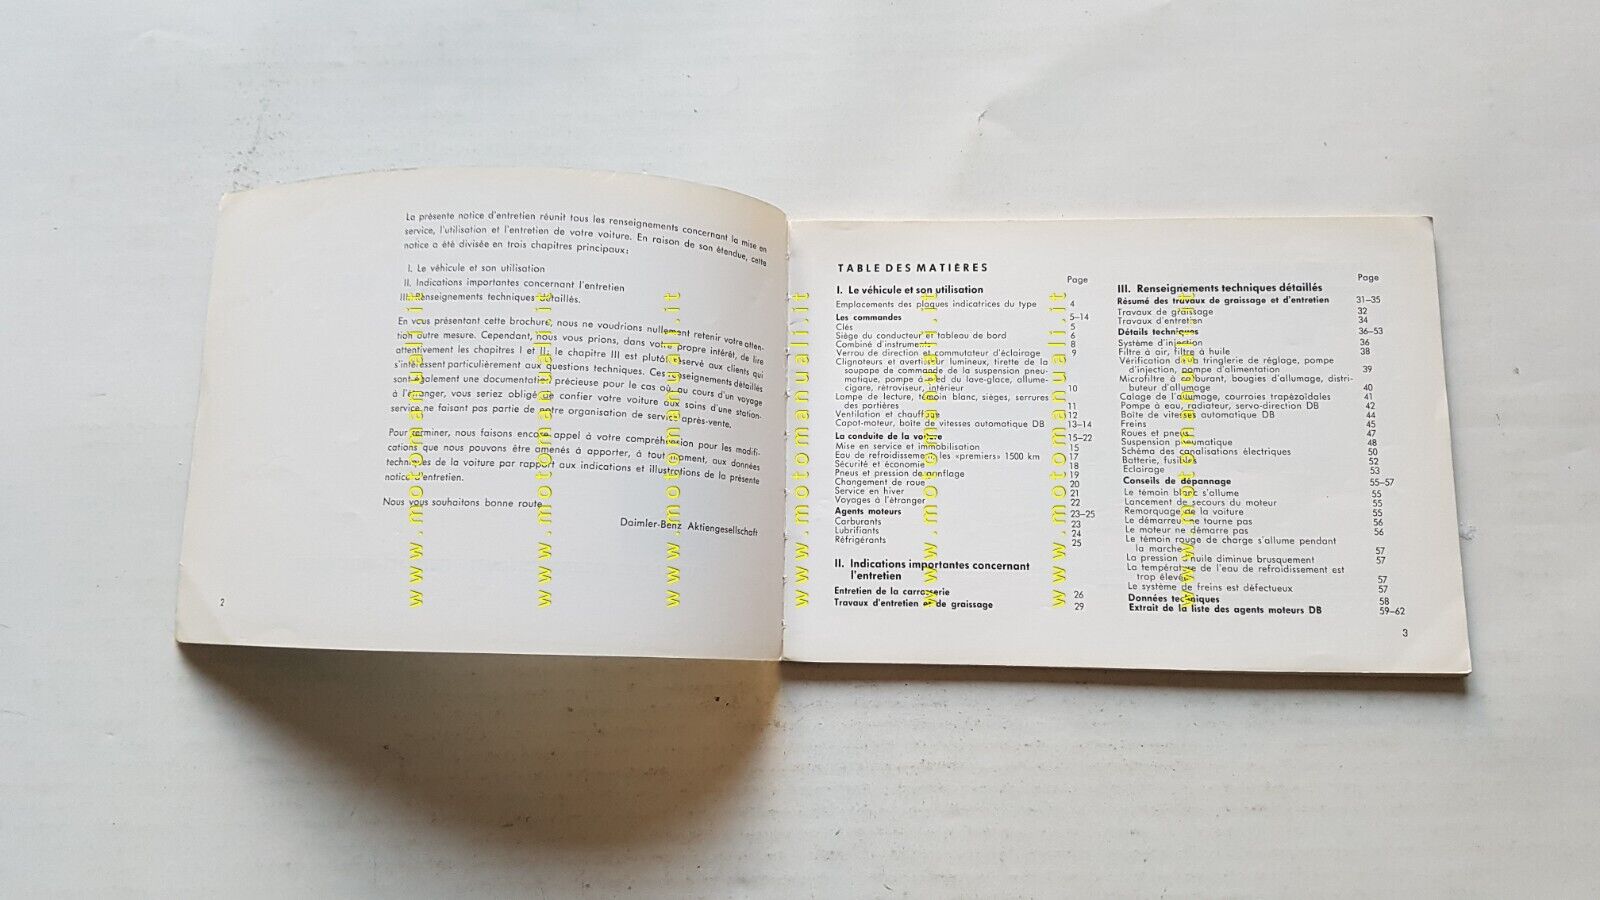 La présente notice d'entretien réunit tous les renseignements concernant la mise en
service, l'utilisation et l'entretien de votre voiture. En raison de son étendue, cette
notice a été divisée en trois chapitres principaux:
I. Le véhicule et son utilisation
II. Indications importantes concernant l'entretien
III. Renseignements techniques détaillés.
En vous présentant cette brochure, nous ne voudrions nullement retenir votre atten-
tion outre mesure. Cependant, nous vous prions, dans votre propre intérêt, de lire
attentivement les chapitres I et II; le chapitre III est plutôt réservé aux clients qui
s'intéressent particulièrement aux questions techniques. Ces renseignements détaillés
sont également une documentation précieuse pour le cas où, au cours d'un voyage
à l'étranger, vous seriez obligé de confier votre voiture aux soins d'une station-
service ne faisant pas partie de notre organisation de service après-vente.
Pour terminer, nous faisons encore appel à votre compréhension pour les modifi-
cations que nous pouvons être amenés à apporter, à tout moment, aux données
techniques de la voiture par rapport aux indications et illustrations de la présente
notice d'entretien.
Nous vous souhaitons bonne route.
Daimler-Benz Aktiengesellschaft
2
TABLE DES MATIÈRES
Page
I. Le véhicule et son utilisation
Emplacements des plaques indicatrices du type 4
Les commandes 5–14
Clés 5
Siège du conducteur et tableau de bord 6
Combiné d'instruments 8
Verrou de direction et commutateur d'éclairage 9
Clignoteurs et avertisseur lumineux, tirette de la
soupape de commande de la suspension pneu-
matique, pompe à pied du lave-glace, allume-
cigare, rétroviseur, intérieur 10
Lampe de lecture, témoin blanc, sièges, serrures
des portières 11
Ventilation et chauffage 12
Capot-moteur, boîte de vitesses automatique DB 13–14
La conduite de la voiture 15–22
Mise en service et immobilisation 15
Eau de refroidissement, les «premiers» 1500 km 17
Sécurité et économie 18
Pneus et pression de gonflage 19
Changement de roue 20
Service en hiver 21
Voyages à l'étranger 22
Agents moteurs 23–25
Carburants 23
Lubrifiants 24
Réfrigérants 25
II. Indications importantes concernant
l'entretien
Entretien de la carrosserie 26
Travaux d'entretien et de graissage 29
Page
III. Renseignements techniques détaillés
Résumé des travaux de graissage et d'entretien 31–35
Travaux de graissage 32
Travaux d'entretien 34
Détails techniques 36–53
Système d'injection 36
Filtre à air, filtre à huile 38
Vérification de la tringlerie de réglage, pompe
d'injection, pompe d'alimentation 39
Microfiltre à carburant, bougies d'allumage, distri-
buteur d'allumage 40
Calage de l'allumage, courroies trapézoïdales 41
Pompe à eau, radiateur, servo-direction DB 42
Boîte de vitesses automatique DB 44
Freins 45
Roues et pneus 47
Suspension pneumatique 48
Schéma des canalisations électriques 50
Batterie, fusibles 52
Eclairage 53
Conseils de dépannage 55–57
Le témoin blanc s'allume 55
Lancement de secours du moteur 55
Remorquage de la voiture 55
Le démarreur ne tourne pas 56
Le moteur ne démarre pas 56
Le témoin rouge de charge s'allume pendant
la marche 57
La pression d'huile diminue brusquement 57
La température de l'eau de refroidissement est
trop élevée 57
Le système de freins est défectueux 57
Données techniques 58
Extrait de la liste des agents moteurs DB 59–62
3
www.motomanuali.it
www.motomanuali.it
www.motomanuali.it
www.motomanuali.it
www.motomanuali.it
www.motomanuali.it
www.motomanuali.it